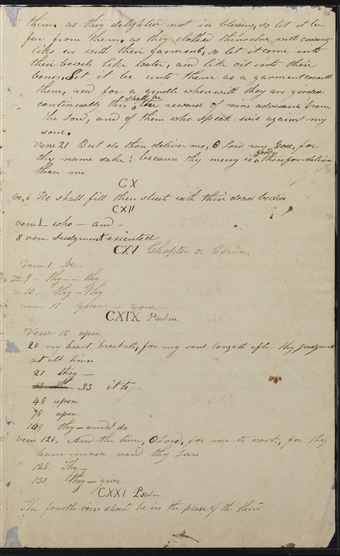 them, as they delighted not in blessing, so let it be
far from them, as they clothed themselves with cursing
like as with their garment, so let it come into
their bowels like water, and like oil into their
bones, Let it be unto them as a garment
them, and for a girdle wherewith they are girded
continually this shall be the reward of mine adversaries from
the Lord, and of them who speak evil against my
soul.
Verse 21 But do thou deliver me, O Lord my God, for
thy name sake; because thy mercy is good, therefore deliver
thou me
CX
ve, 6 He shall fill their streets with their dead bodies
CXII
verse 1 who - and -
8 verse Judgment executed
CXV Chapter or Psalm
verse 1 be
9 - thy - thy
10 - thy - thy
verse 11 your - your
CXIX Psalm
Verse 15 upon
20 my heart breaketh, for my soul longeth after thy judgments
at all times
21 they -
33 it to -
48 upon
78 upon
109 thy - and I do
verse 126. And the time, O Lord, for me to work, for they
have made void thy law
128. Thy -
130, they - give
CXXI Psalm
The fourth verse should be in the place of the third